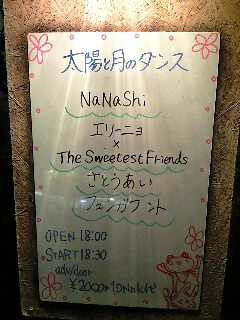 太陽と月のダンス
NaNaShi
エリーニョ
×
The Sweetest Friends
さとうあい
フェンガフント
OPEN 18:00
START 18:30
adv/door
¥2000+1Drink